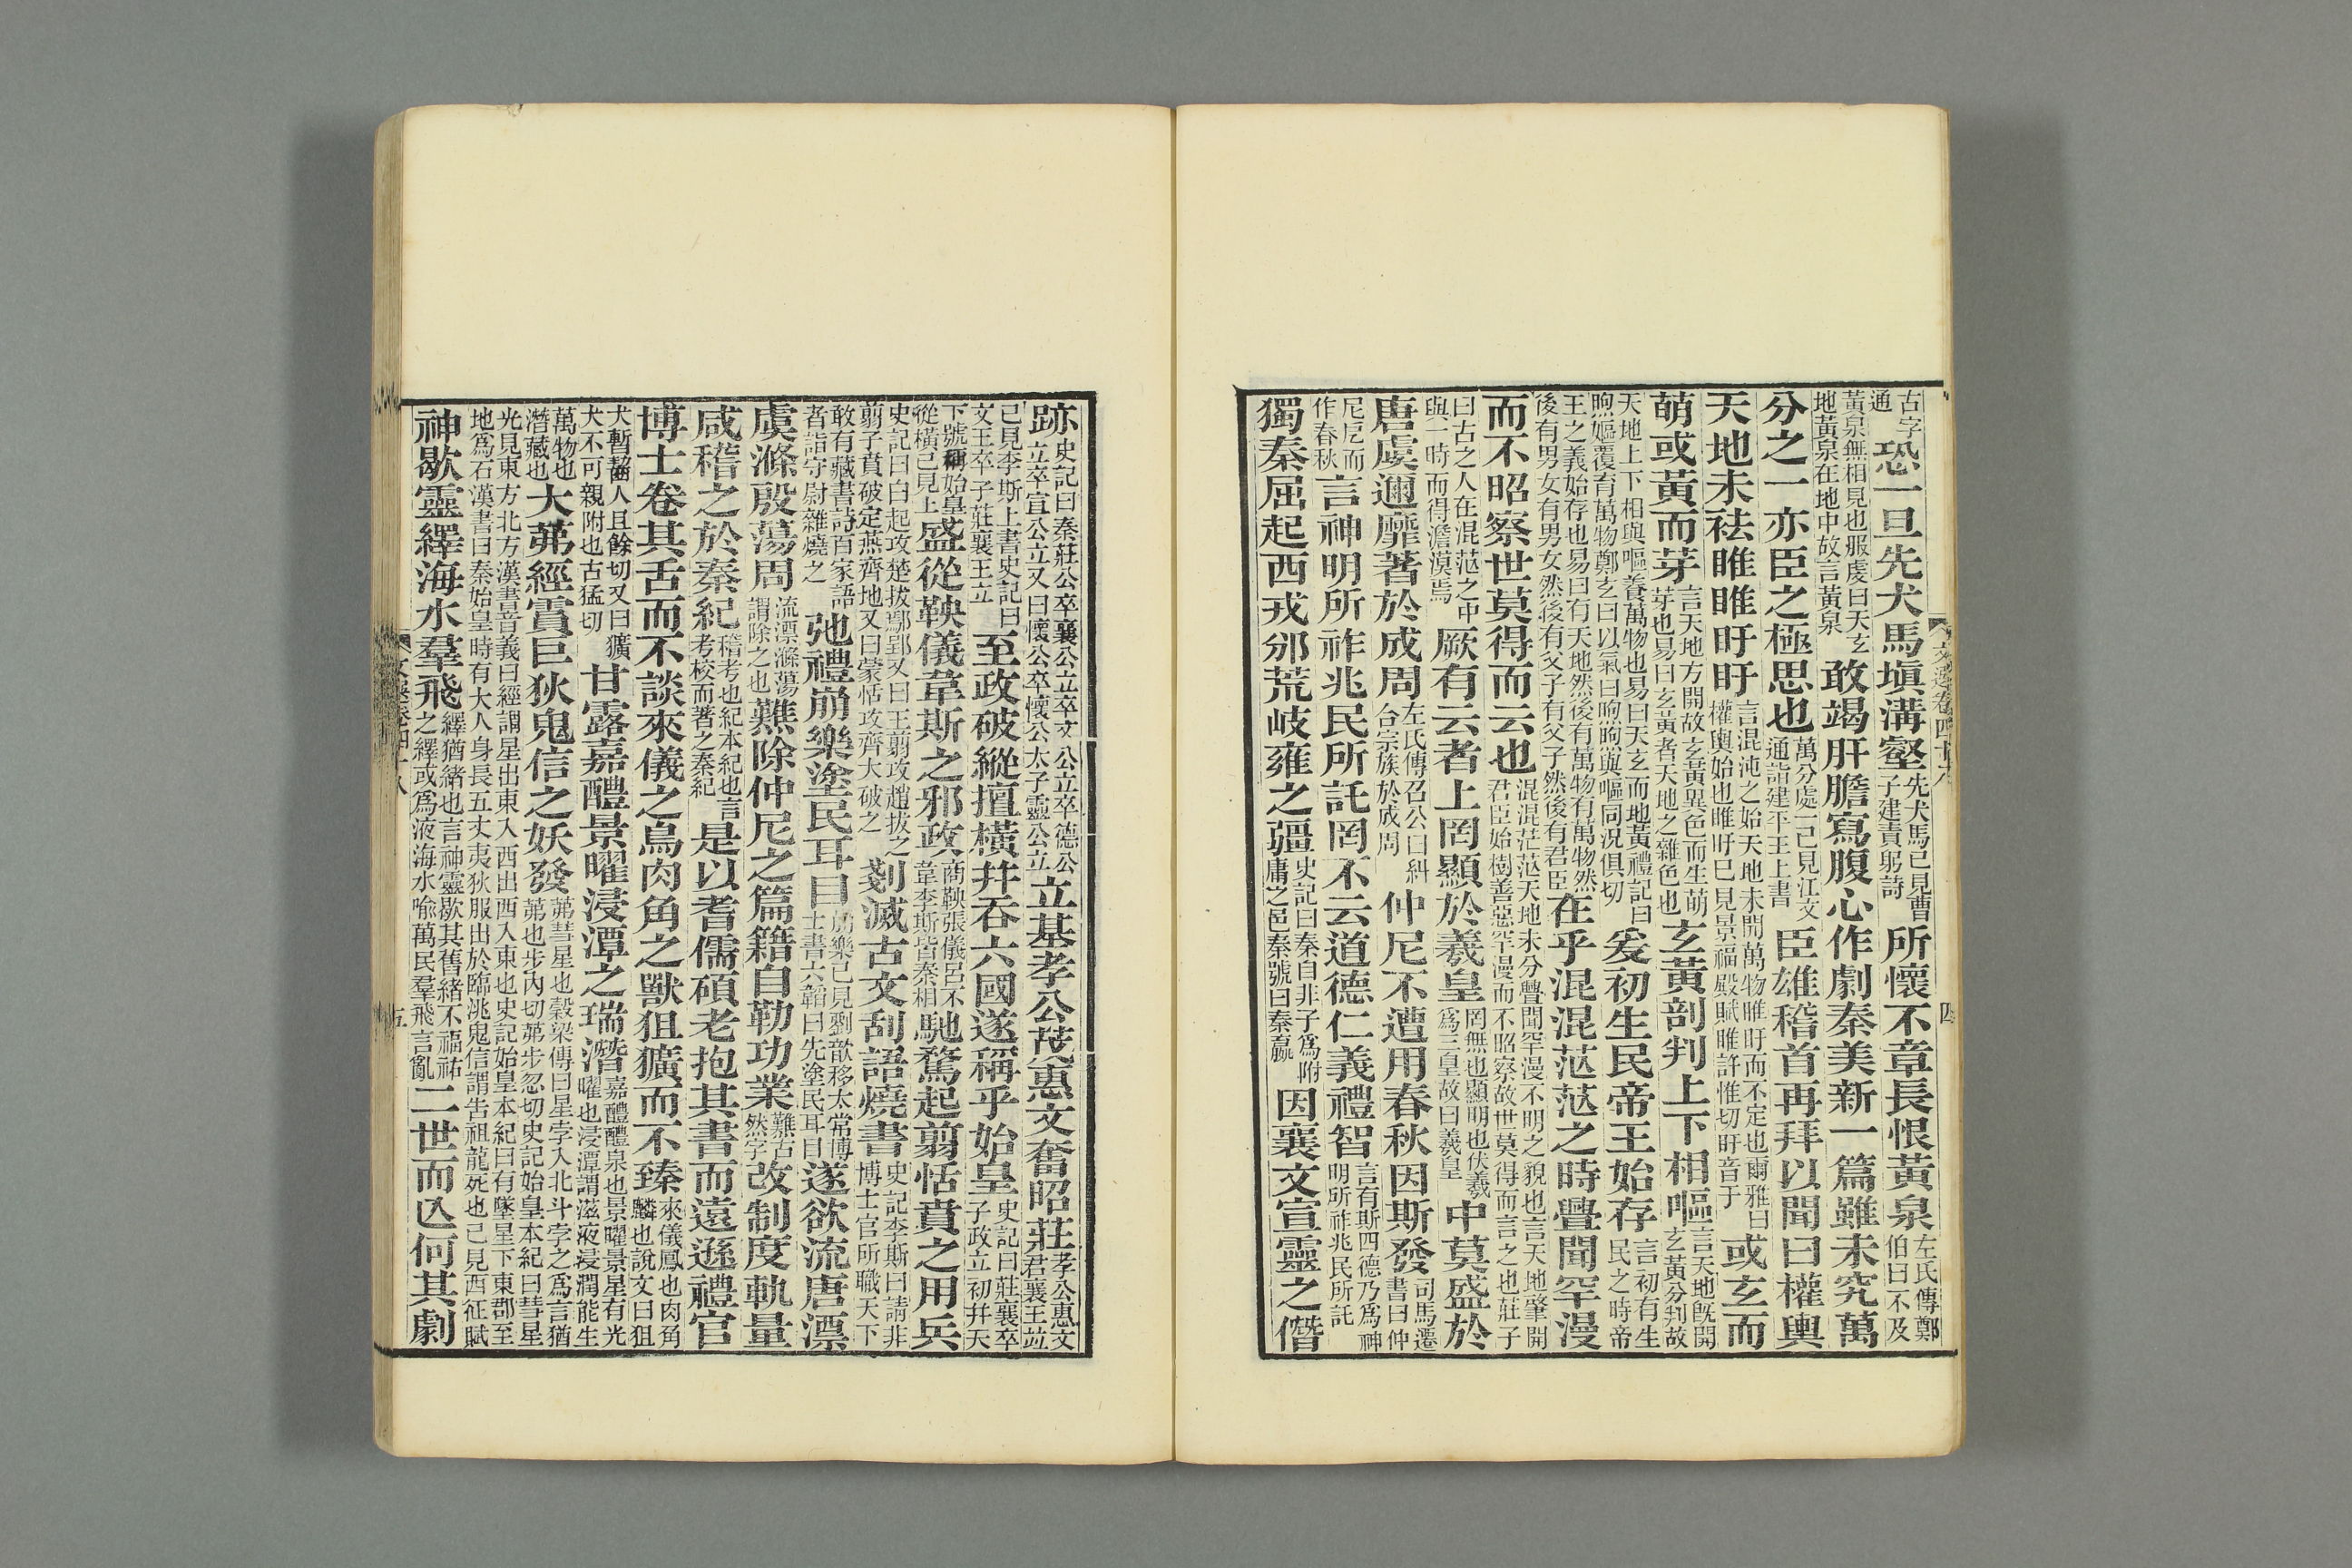 古字通恐一旦先犬馬塡溝壑先犬馬已見曹子建責躬詩所懷不章長恨黃泉左氏傳鄭伯曰不及
黃泉無相見也服虔曰天玄地黃泉在地中故言黃泉敢竭肝膽寫腹心作劇秦美新一篇雖未究萬
分之一亦臣之極思也萬分處一已見江文通詣建平王上書臣雄稽首再拜以聞曰權輿
天地未袪睢睢盱盱言混沌之始天地未開萬物睢盱而不定也爾雅曰權輿始也睢盱已見景福殿賦睢許惟切盱音于或玄而
萌或黃而芽言天地方開故玄黃異色而生萌芽也易曰玄黃者天地之雜色也玄黃剖判上下相嘔言天地旣開玄黃分判故
天地上下相與嘔養萬物也易曰天玄而地黃禮記曰煦嫗覆育萬物鄭玄曰以氣曰煦煦與嘔同況俱切爰初生民帝王始存言初有生民之時帝
王之義始存也易曰有天地然後有萬物有萬物然後有男女有男女然後有父子有父子然後有君臣在乎混混茫茫之時舋聞罕漫
而不昭察世莫得而云也混混茫茫天地未分舋聞罕漫不明之貌也言天地肇開君臣始樹善惡罕漫而不昭察故世莫得而言之也莊子
曰古之人在混茫之中與一時而得澹漠焉厥有云者上罔顯於羲皇罔無也顯明也伏羲爲三皇故曰羲皇中莫盛於
唐虞邇靡著於成周左氏傳召公曰糾合宗族於成周仲尼不遭用春秋因斯發司馬遷書曰仲
尼戹而作春秋言神明所祚兆民所託罔不云道德仁義禮智言有斯四德乃爲神明所祚兆民所託
獨秦屈起西戎邠荒岐雍之疆史記曰秦自非子爲附庸之邑秦號曰秦嬴因襄文宣靈之僭
文選卷四十八
四
跡史記曰秦莊公卒襄公立卒文公立卒德公立卒宣公立又曰懷公卒懷公太子靈公立立基孝公茂惠文奮昭莊孝公惠文君襄王竝
已見李斯上書史記曰文王卒子莊襄王立至政破縱擅橫幷吞六國遂稱乎始皇史記曰莊襄卒子政立初幷天
下號稱始皇從橫已見上盛從鞅儀韋斯之邪政商鞅張儀呂不韋李斯皆秦相馳騖起翦恬賁之用兵
史記曰白起攻楚拔鄢郢又曰王翦攻趙拔之翦子賁破定燕齊地又曰蒙恬攻齊大破之剗滅古文刮語燒書史記李斯曰請非博士官所職天下
敢有藏書詩百家語者詣守尉雜燒之弛禮崩樂塗民耳目崩樂已見劉歆移太常博士書六韜曰先塗民耳目遂欲流唐漂
虞滌殷蕩周流漂滌蕩謂除之也難除仲尼之篇籍自勒功業難古然字改制度軌量
咸稽之於秦紀稽考也紀本紀也言考校而著之秦紀是以耆儒碩老抱其書而遠遜禮官
博士卷其舌而不談來儀之鳥肉角之獸狙獷而不臻來儀鳳也肉角麟也說文曰狙
犬暫齧人且餘切又曰獷犬不可親附也古猛切甘露嘉醴景曜浸潭之瑞潛嘉醴醴泉也景曜景星有光曜也浸潭謂滋液浸潤能生
萬物也潛藏也大茀經霣巨狄鬼信之妖發茀彗星也穀梁傳曰星孛入北斗孛之爲言猶茀也步內切茀步忽切史記始皇本紀曰彗星
光見東方北方漢書音義曰經謂星出東入西出西入東也史記始皇本紀曰有墜星下東郡至地爲石漢書曰秦始皇時有大人身長五丈夷狄服出於臨洮鬼信謂告祖龍死也已見西征賦
神歇靈繹海水羣飛繹猶緒也言神靈歇其舊緒不福祐之繹或爲液海水喩萬民羣飛言亂二世而亾何其劇
五